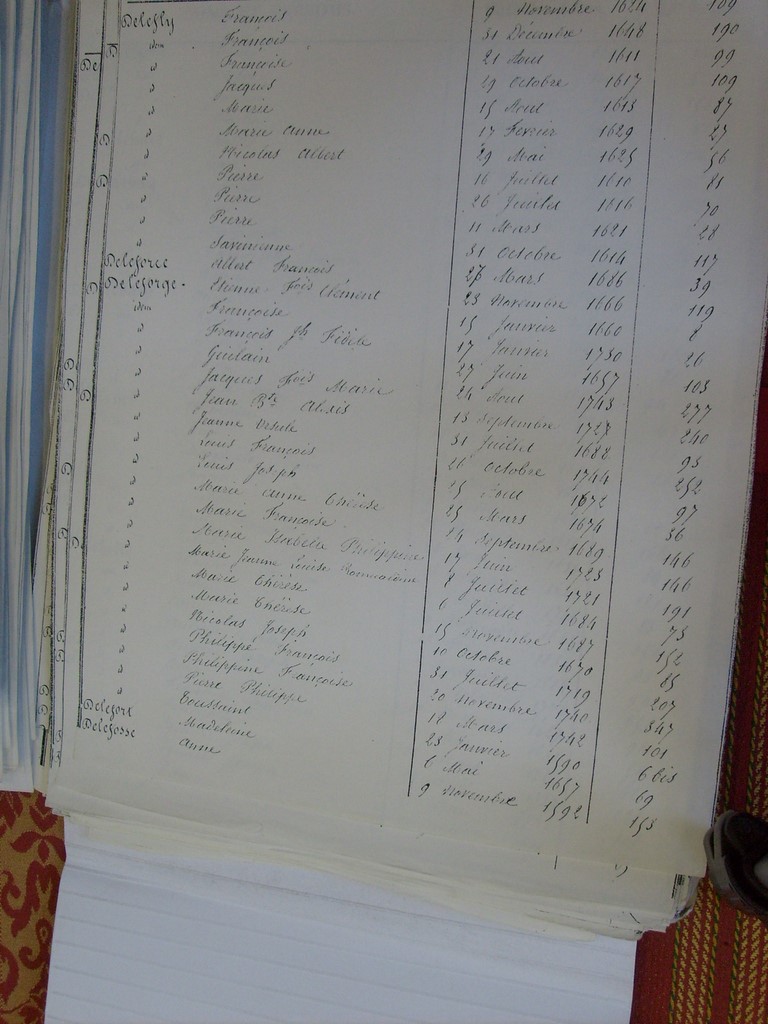 Delefly François 9 Novembre 1624 109
idem François 31 Décembre 1648 190
" Françoise 21 Aout 1611 99
" Jacques 29 Octobre 1617 109
" Marie 15 Aout 1613 87
" Marie Anne 17 Fevrier 1629 27
" Nicolas Albert 29 Mai 1625 56
" Pierre 16 Juillet 1610 81
" Pierre 26 Juillet 1616 70
" Pierre 11 Mars 1621 28
" Savinienne 31 Octobre 1614 117
Albert François 27 Mars 1686 39
Deleforge. Etienne Fois Clément 23 Novembre 1666 119
idem Françoise 15 Janvier 1660 8
" François Jh Fidèle 17 Janvier 1730 26
" Guilain 27 Juin 1657 103
" Jacques Fois Marie 24 Aout 1743 277
" Jean Bte Alexis 13 Septembre 1727 240
" Jeanne Ursule 31 Juillet 1688 93
" Louis François 26 Octobre 1744 252
" Louis Joseph 25 Aout 1672 97
" Marie Anne Thérèse 25 Mars 1674 36
" Marie Françoise 14 Septembre 1689 146
" Marie Isabelle Philippine 17 Juin 1723 146
" Marie Jeanne Louise Romualdine 8 Juillet 1721 191
" Marie Thérèse 6 Juillet 1684 73
" Marie Thérèse 15 Novembre 1687 152
" Nicolas Joseph 10 Octobre 1670 85
" Philippe François 31 Juillet 1719 207
" Philippine Françoise 20 Novembre 1740 347
" Pierre Philippe 18 Mars 1742 101
Delefort Toussaint 23 Janvier 1590 6 bis
Delefosse Madeleine 6 Mai 1657 69
Anne 9 Novembre 1592 153